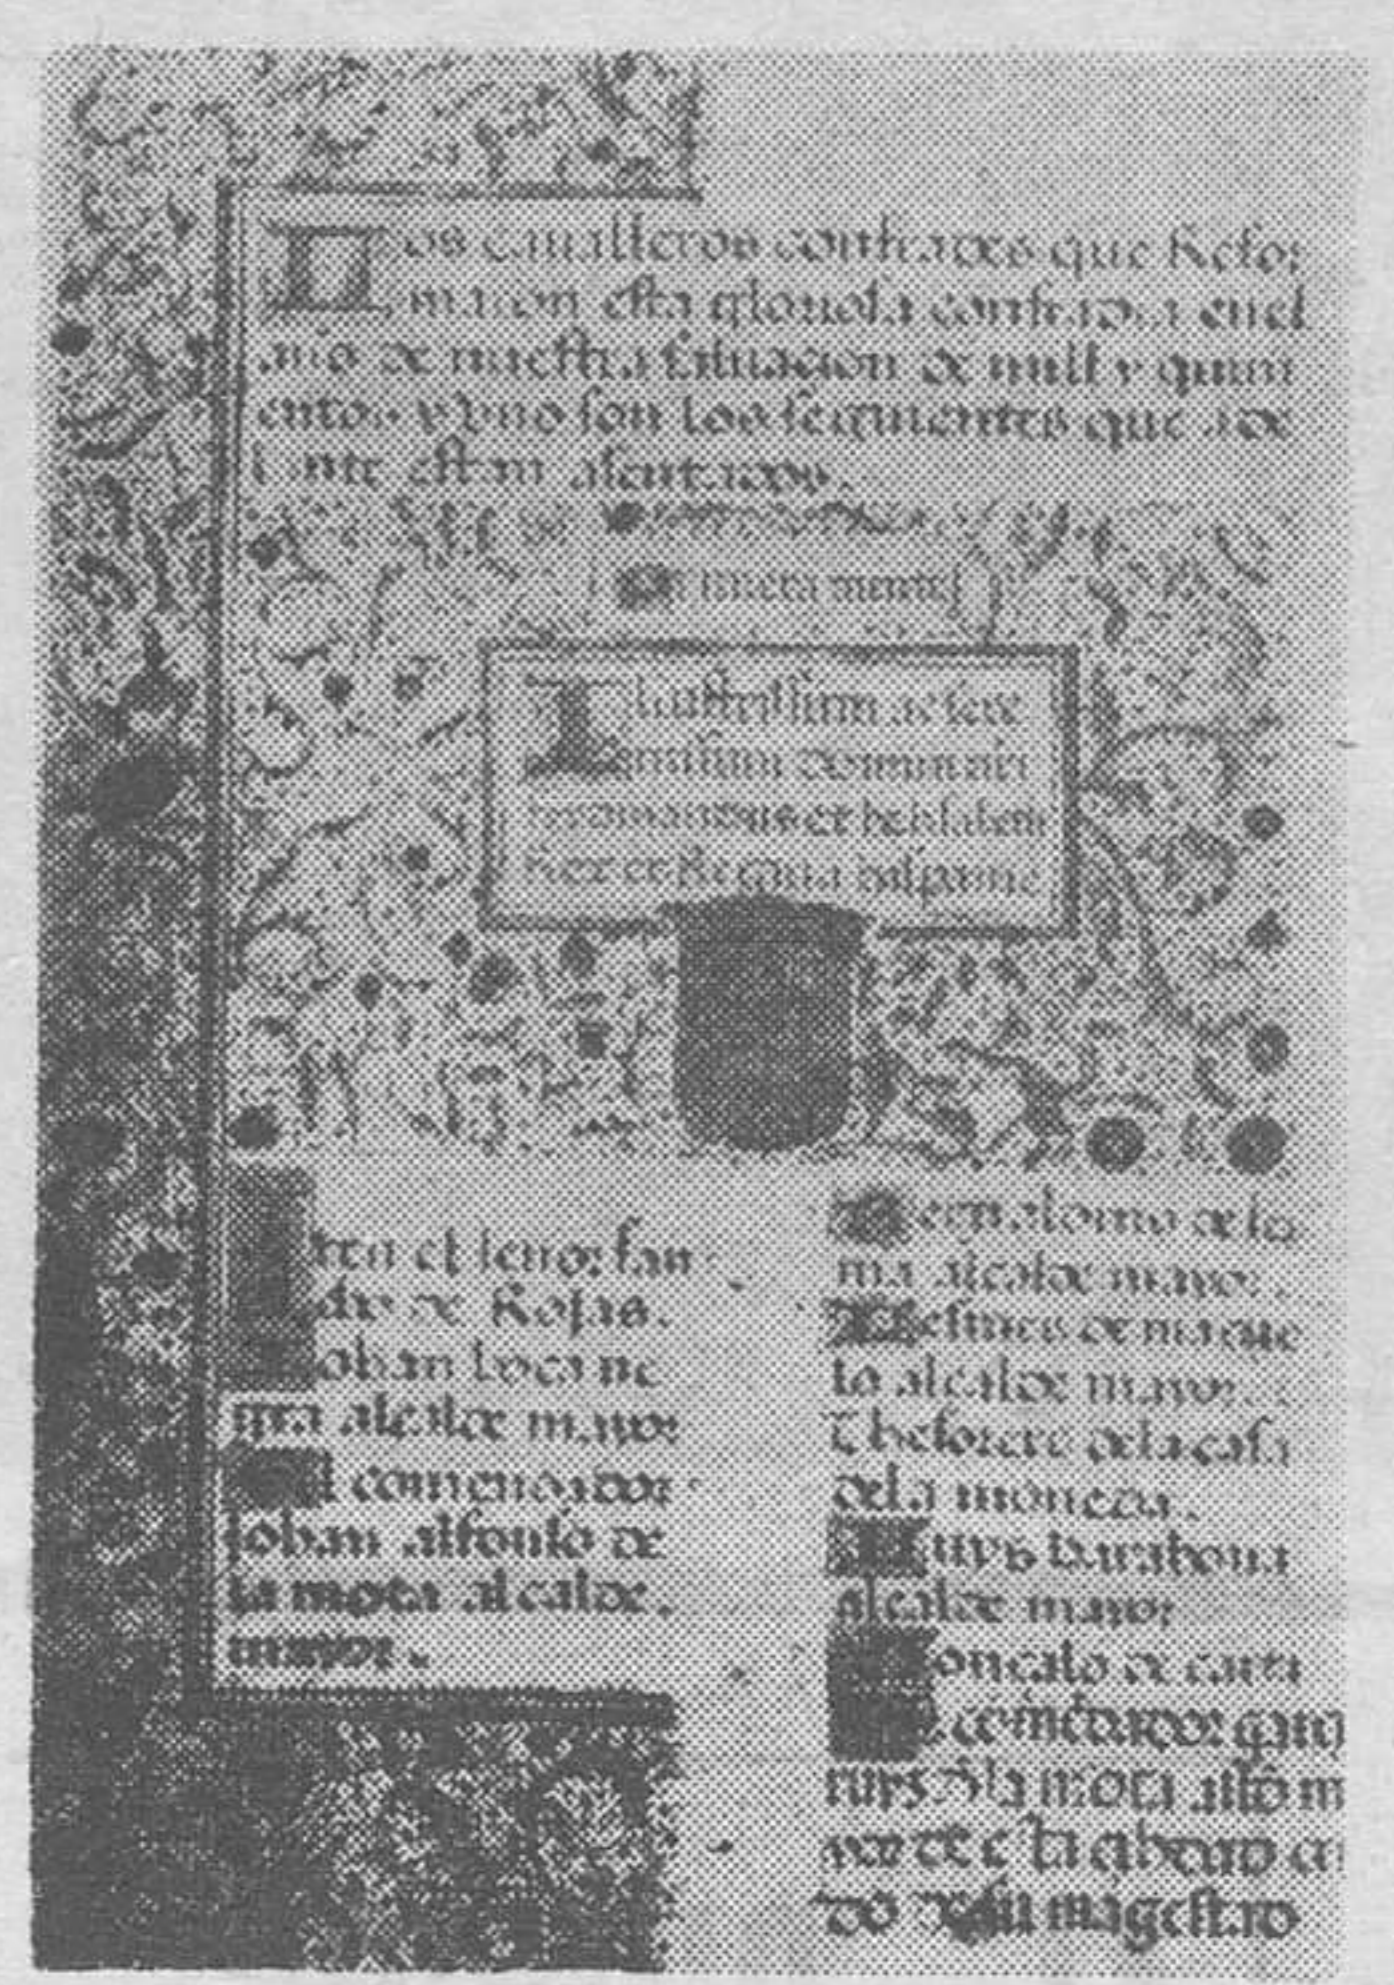 Los caualleros confrades que Refor
maron esta gloriosa confradia enel
año de nuestra saluacion de mill y quini
entos y vno son los seguientes que ade
lante estan asentados.
tanto monta
Illustrissimi ac sere
nissimi domini
et helisabem
Rex et Regina hispanie
el señor san
cho de Rojas.
Johan boca ne
gra alcalde mayor
El comendador
Johan alfonso de
la mota alcalde
mayor.
de lo
ma alcalde mayor.
de maçue
lo alcalde mayor.
Thesorero dela casa
dela moneda.
Luys barahona
alcalde mayor
Gonçalo de carta
comẽdador garçi
ruys d la mota
mayor de
do de su magestad